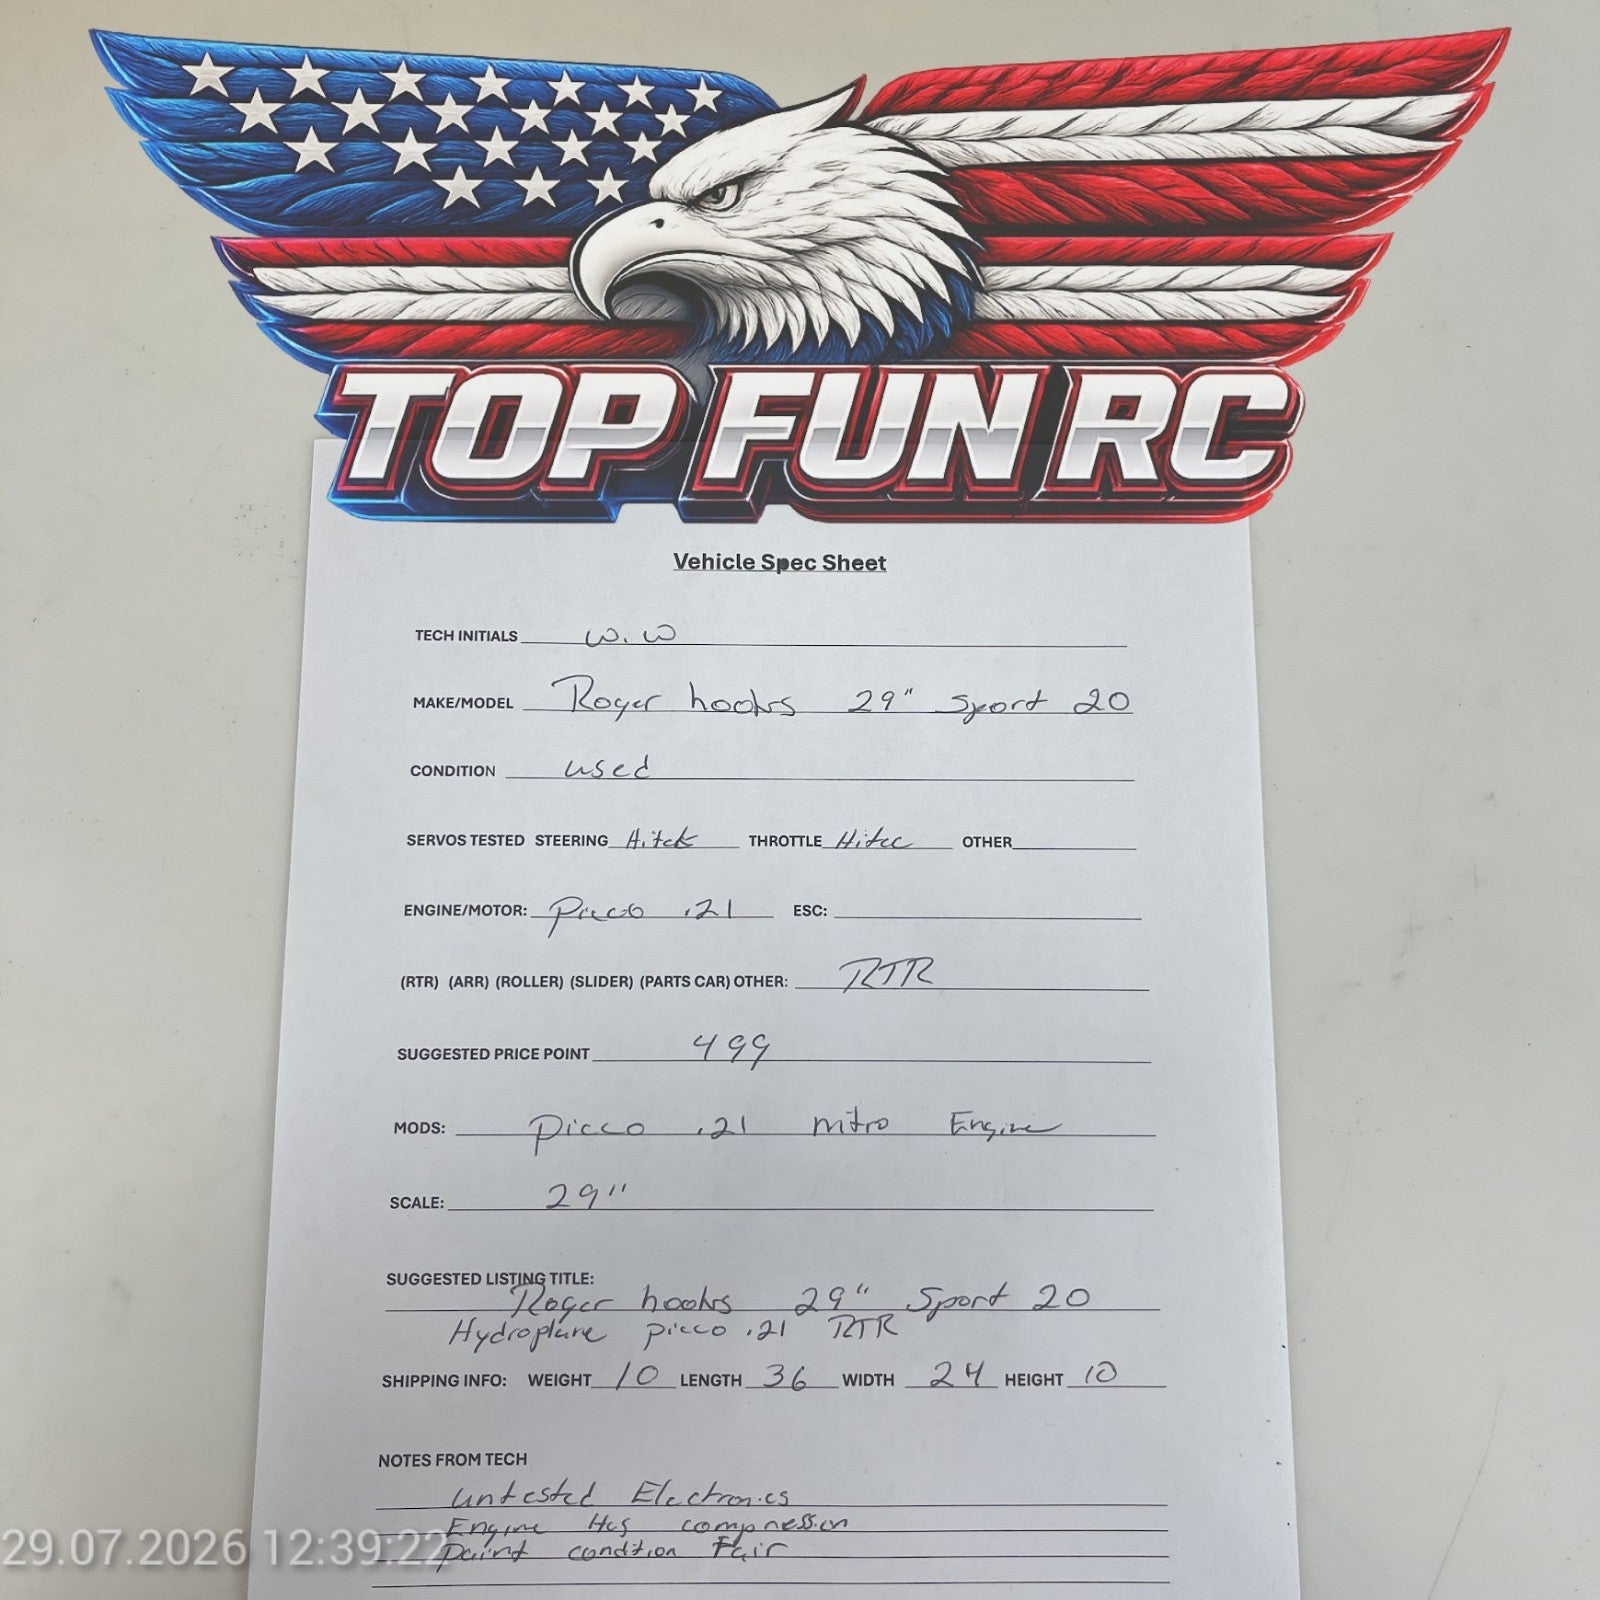 TOP FUN RC
Vehicle Spec Sheet
TECH INITIALS W.W
MAKE/MODEL Roger hooks 29" Sport 20
CONDITION used
SERVOS TESTED STEERING Hitec THROTTLE Hitec OTHER
ENGINE/MOTOR: Picco .21 ESC:
(RTR) (ARR) (ROLLER) (SLIDER) (PARTS CAR) OTHER: RTR
SUGGESTED PRICE POINT 499
MODS: Picco .21 nitro Engine
SCALE: 29"
SUGGESTED LISTING TITLE:
Roger hooks 29" Sport 20
Hydroplane picco .21 RTR
SHIPPING INFO: WEIGHT 10 LENGTH 36 WIDTH 24 HEIGHT 10
NOTES FROM TECH
untested Electronics
Engine Has compression
paint condition Fair
29.07.2026 12:39:22